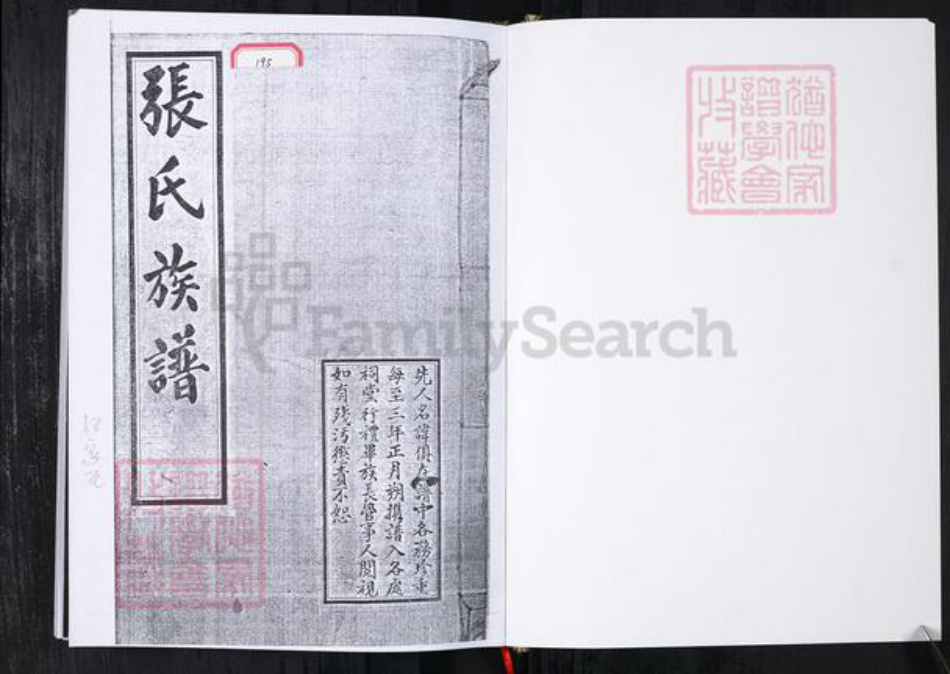 張氏族譜
195
先人名諱俱在譜中各務珍重
每至三年正月朔攜譜入各處
祠堂行禮畢族長管事人閱視
如有殘污懲責不恕
猶他家
譜學會
收藏
FamilySearch